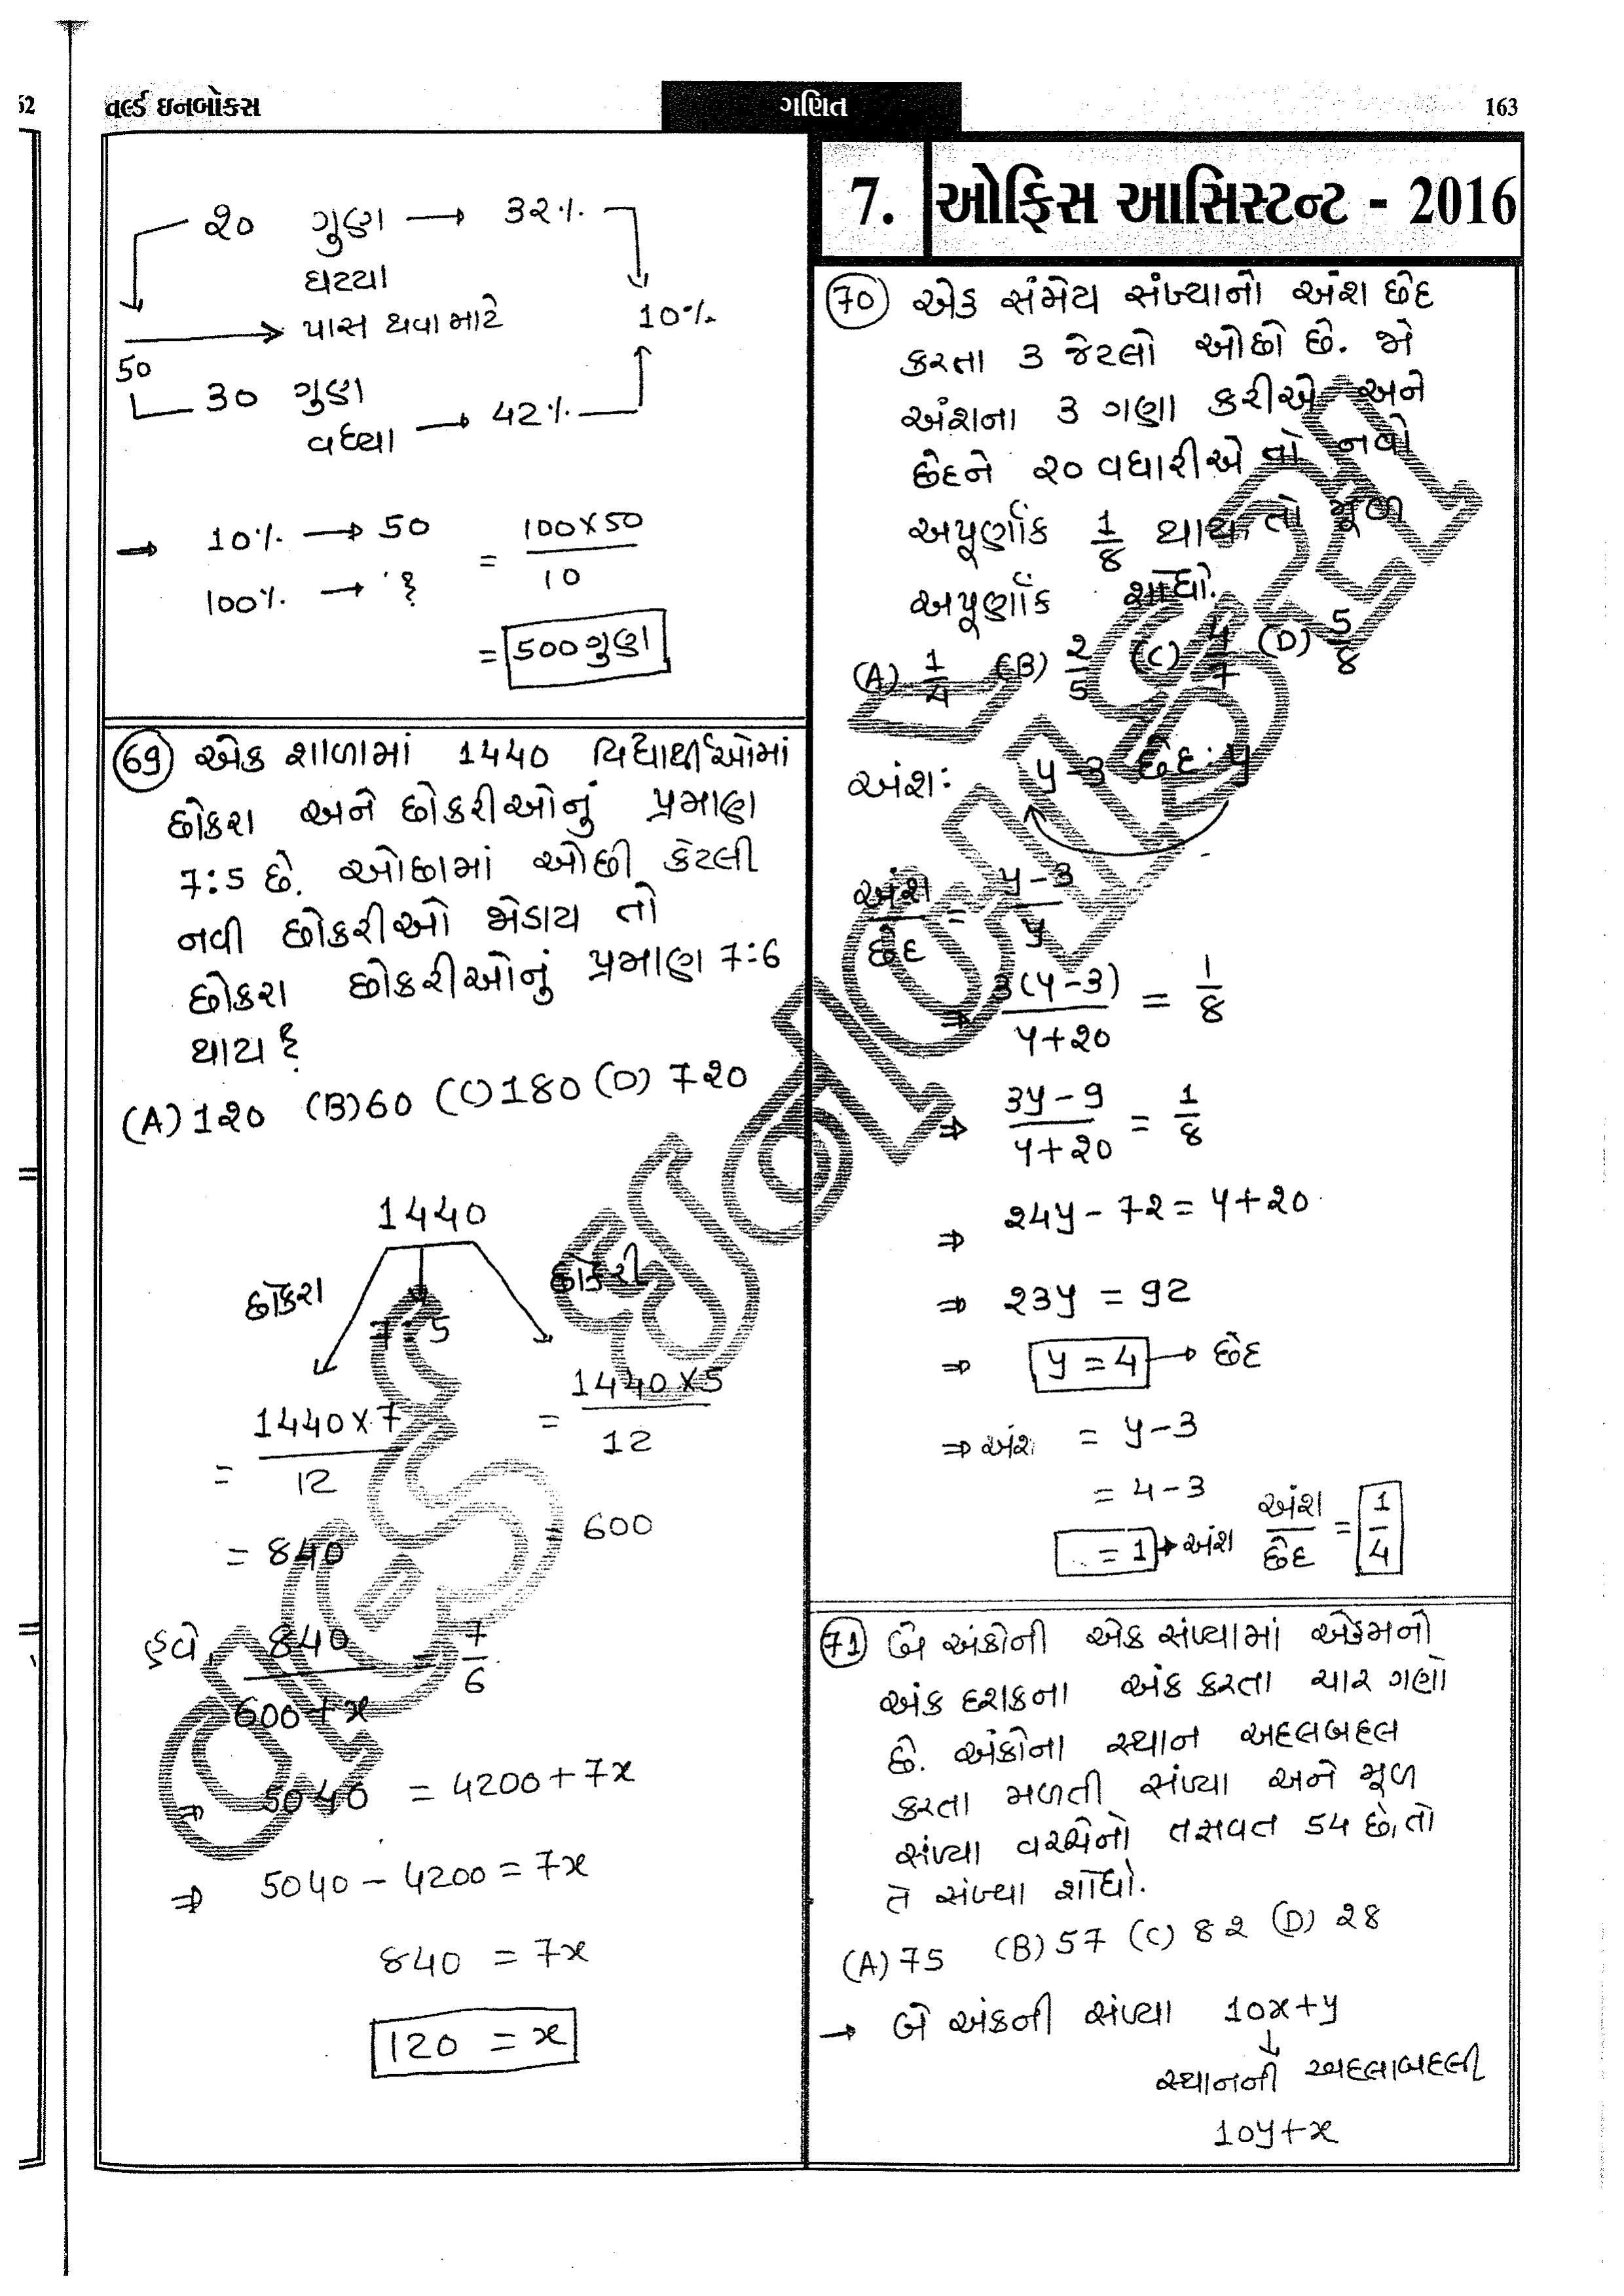 52
વર્લ્ડ ઇનબોક્સ
ગણિત
163
20 ગુણ → 32%
ઘટયા
50 → પાસ થવા માટે 10%
30 ગુણ
વધ્યા → 42%
→ 10% → 50 = 100×50 / 10
100% → ?
= 500 ગુણ
69 એક શાળામાં 1440 વિદ્યાર્થીઓમાં
છોકરા અને છોકરીઓનું પ્રમાણ
7:5 છે. ઓછામાં ઓછી કેટલી
નવી છોકરીઓ જોડાય તો
છોકરા છોકરીઓનું પ્રમાણ 7:6
થાય ?
(A) 120 (B) 60 (C) 180 (D) 720
1440
છોકરા 7:5 છોકરી
= 1440×7 / 12 = 1440×5 / 12
= 840 = 600
હવે, 840 / 600+x = 7/6
⇒ 5040 = 4200+7x
⇒ 5040 - 4200 = 7x
840 = 7x
120 = x
7. ઓફિસ આસિસ્ટન્ટ - 2016
70 એક સંમેય સંખ્યાનો અંશ છેદ
કરતા 3 જેટલો ઓછો છે. જો
અંશના 3 ગણા કરીએ અને
છેદને 20 વધારીએ તો નવો
અપૂર્ણાંક 1/8 થાય, તો મૂળ
અપૂર્ણાંક શોધો.
(A) 1/4 (B) 2/5 (C) 4/7 (D) 5/8
અંશ: y-3 છેદ: y
અંશ/છેદ = y-3 / y
⇒ 3(y-3) / y+20 = 1/8
⇒ 3y-9 / y+20 = 1/8
⇒ 24y - 72 = y+20
⇒ 23y = 92
⇒ y = 4 → છેદ
⇒ અંશ = y-3
= 4-3
= 1 → અંશ અંશ/છેદ = 1/4
71 બે અંકોની એક સંખ્યામાં એકમનો
અંક દશકના અંક કરતા ચાર ગણો
છે. અંકોના સ્થાન અદલબદલ
કરતા મળતી સંખ્યા અને મૂળ
સંખ્યા વચ્ચેનો તફાવત 54 છે, તો
તે સંખ્યા શોધો.
(A) 75 (B) 57 (C) 82 (D) 28
→ બે અંકની સંખ્યા 10x+y
↓
સ્થાનની અદલાબદલી
10y+x